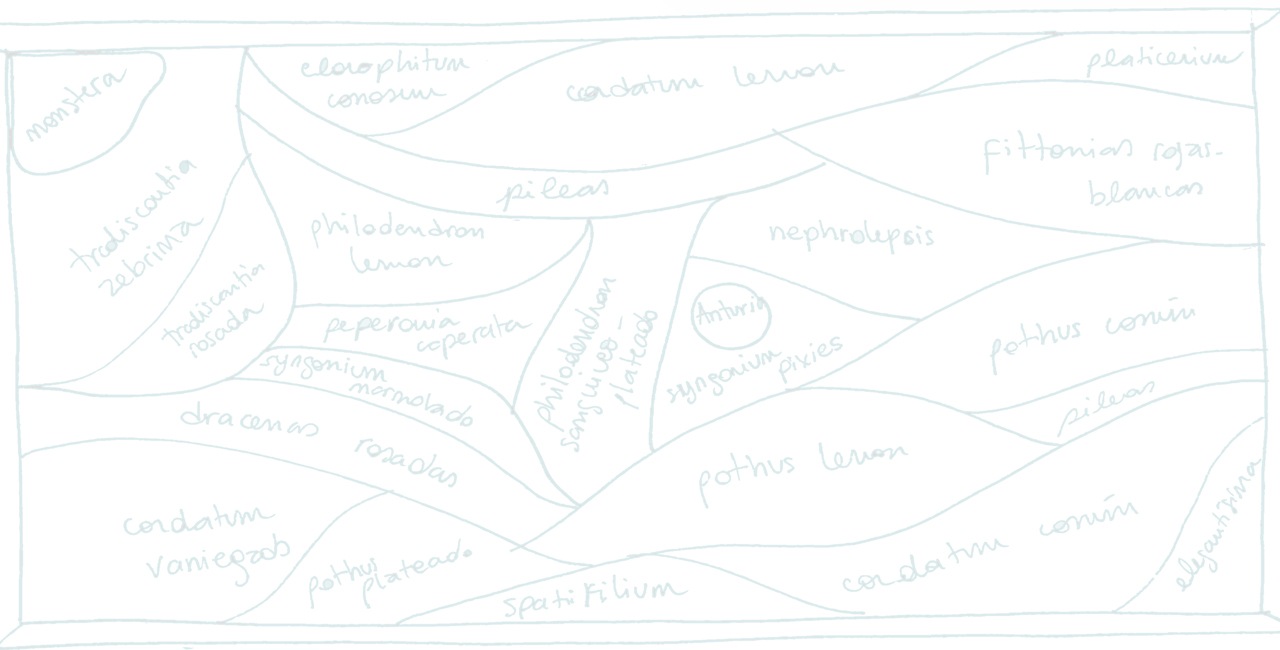 monstera
clorophitum
conosum
cordatum lemon
platicerium
fittonias rojas-
blancas
pileas
tradiscantia
zebrina
philodendron
lemon
nephrolepsis
tradiscantia
rosada
peperomia
caperata
philodendron
sanguineo-
plateado
Anturio
syngonium
pixies
pothus común
syngonium
marmolado
pileas
dracenas rosadas
pothus lemon
cordatum
variegado
pothus
plateado
spatifilium
cordatum común
elegantisima